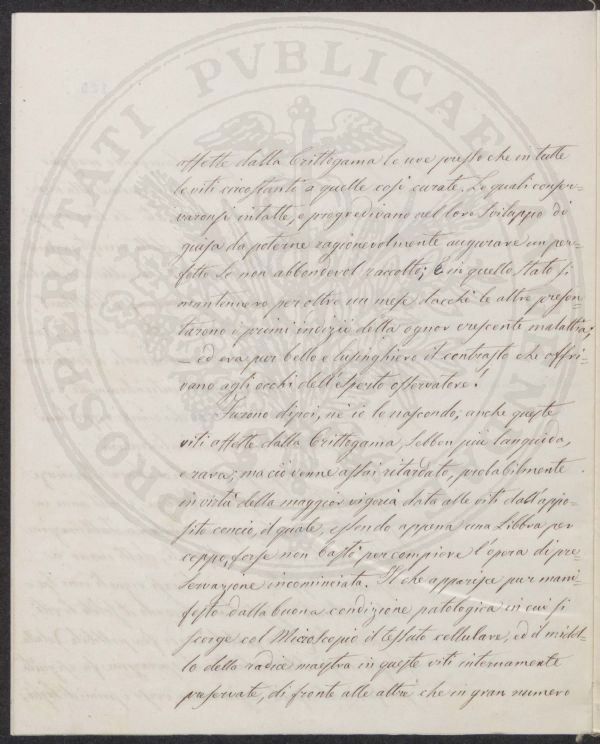 PROSPERITATI PVBLICAE
affette dalla Crittogama le uve presso che in tutte
le viti circostanti a quelle così curate. Le quali conser-
varonsi intatte, e progredivano nel loro sviluppo di
guisa da poterne ragionevolmente augurare un per-
fetto se non abbondevol raccolto; e in questo stato si
mantennero per oltre un mese dacchè le altre presen-
tarono i primi indizii della ognor crescente malattia;
— ed era pur bello e lusinghiero il contrasto che offri-
vano agli occhi dell'esperto osservatore!
Furono dipoi, nè io lo nascondo, anche queste
viti affette dalla Crittogama, sebben più languida,
e rara; ma ciò venne assai ritardato, probabilmente
in virtù della maggior vigoria data alle viti dall'appo-
sito concio, il quale, essendo appena una Libbra per
ceppo, forse non bastò per compiere l'opera di pre-
servazione incominciata. Il che apparisce pur mani-
festo dalla buona condizione patologica in cui si
scorge col Microscopio il tessuto cellulare, ed il midol-
lo della radice maestra in queste viti internamente
preservate, di fronte alle altre che in gran numero